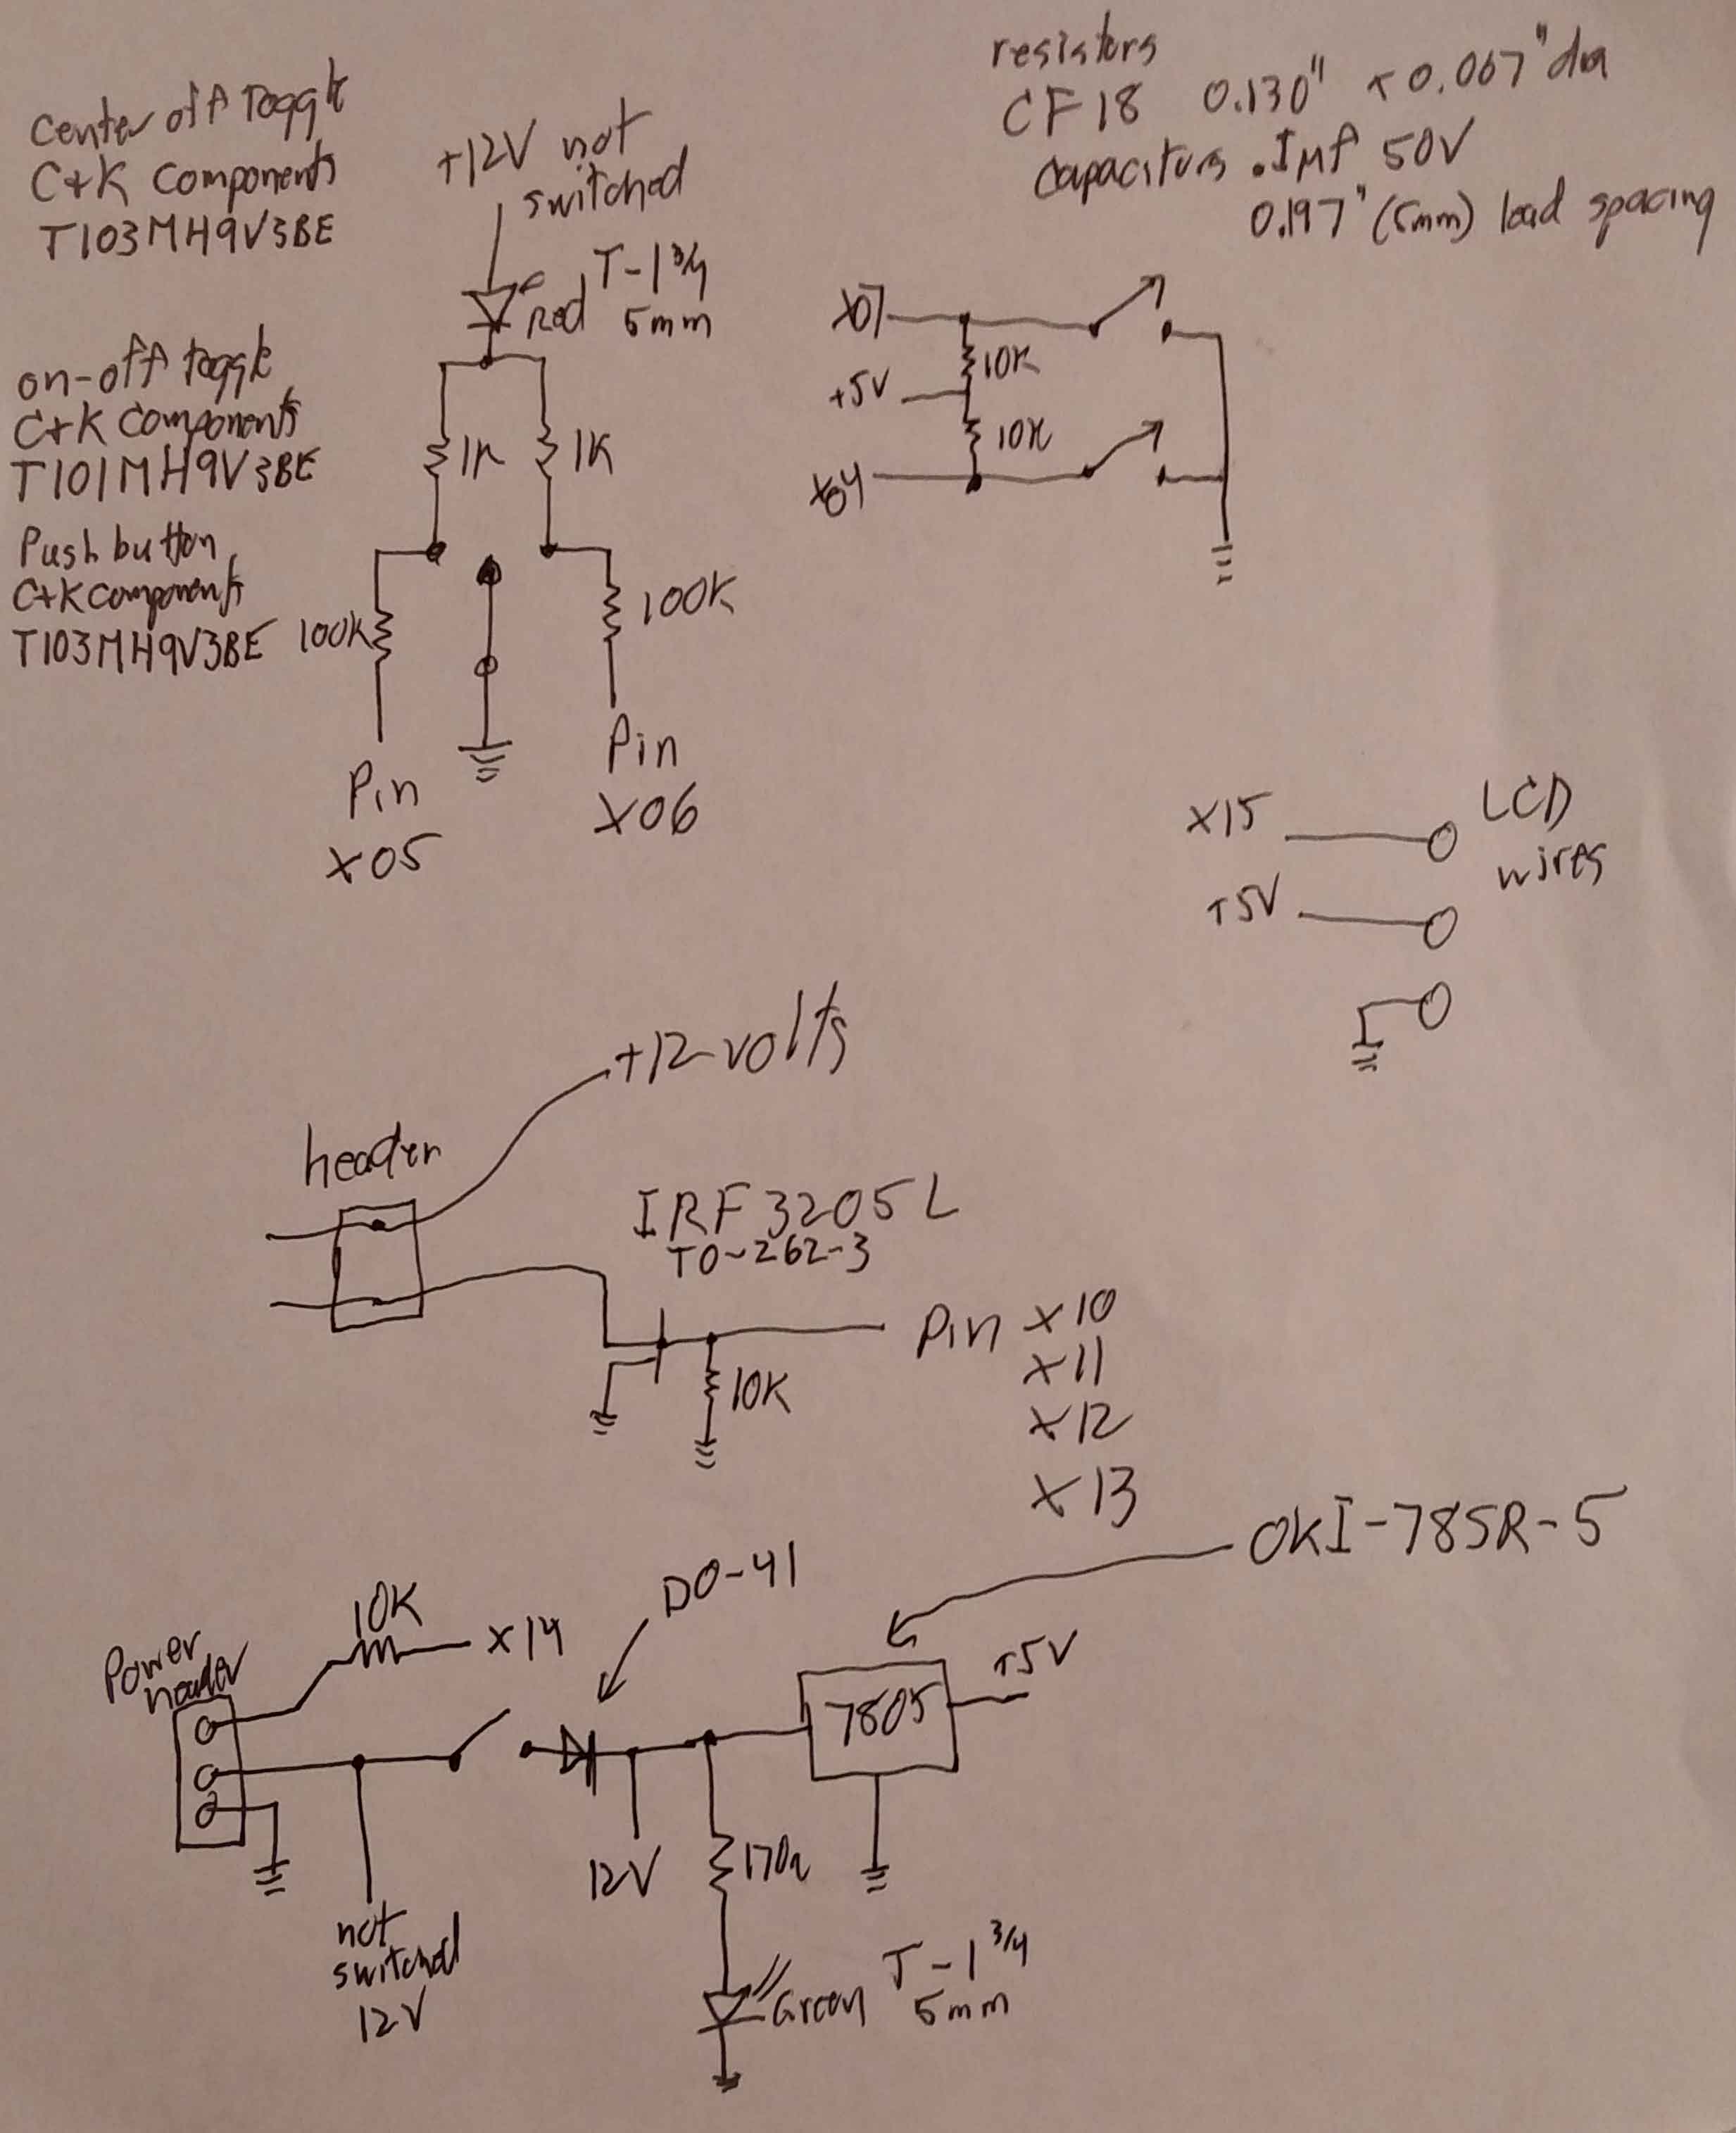 Center off Toggle
C+K Components
T103MH9V3BE
on-off toggle
C+K Components
T101MH9V3BE
Push button
C+K components
T103MH9V3BE
+12V not
switched
Red T-1 3/4
5mm
1K
1K
100K
100K
Pin
X05
Pin
X06
resistors
CF18 0.130" x 0.067" dia
capacitors .1µf 50V
0.197" (5mm) lead spacing
X07
10K
+5V
10K
X04
X15
LCD
wires
+5V
+12 volts
header
IRF3205L
TO-262-3
Pin X10
X11
X12
X13
10K
OKI-78SR-5
DO-41
10K
X14
Power
header
7805
+5V
12V
170Ω
not
switched
12V
Green T-1 3/4
5mm